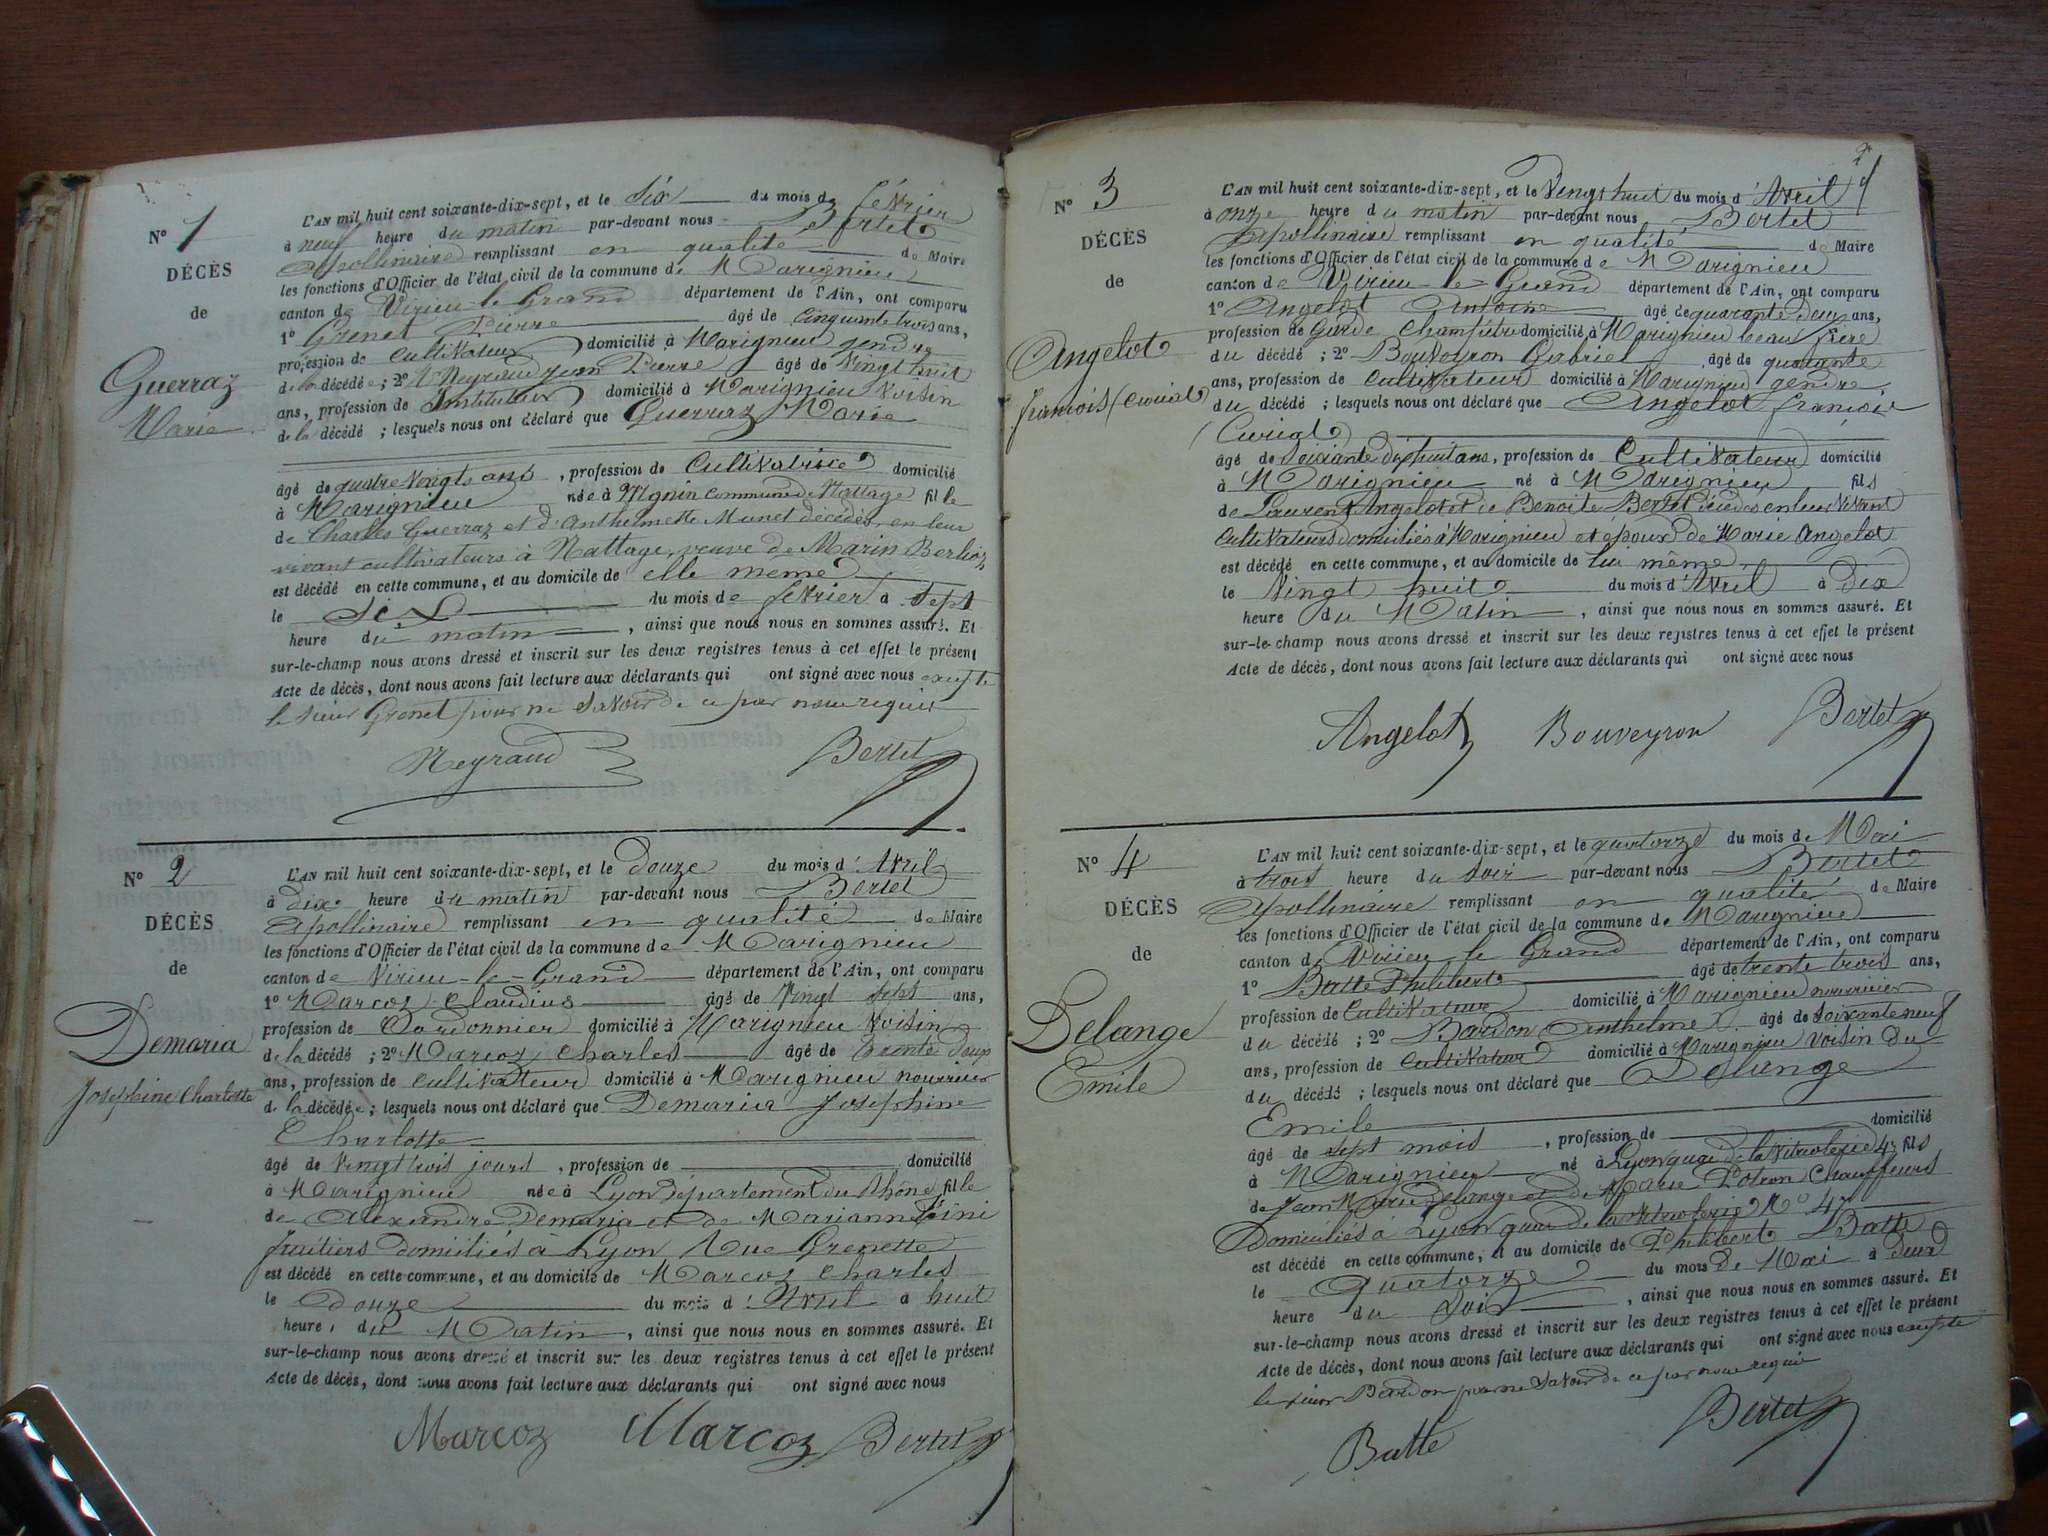 Nº 1
DÉCÈS
de
Guerraz
Marie
L'AN mil huit cent soixante-dix-sept, et le Six du mois de février
à neuf heure du matin par-devant nous Bertet
Apollinaire remplissant en qualité de Maire
les fonctions d'Officier de l'état civil de la commune de Marignieu
canton de Virieu-le-Grand département de l'Ain, ont comparu
1º Grenet Pierre âgé de cinquante trois ans,
profession de cultivateur domicilié à Marignieu gendre
de la décédée ; 2º Neyraud Jean Pierre âgé de vingt huit
ans, profession de Instituteur domicilié à Marignieu Voisin
de la décédé ; lesquels nous ont déclaré que Guerraz Marie
âgé de quatre vingts ans , profession de Cultivatrice domicilié
à Marignieu née à commune de Nattage fille
de Charles Guerraz et d'Anthelmette Munet décédés en leur
vivant cultivateurs à Nattage, veuve de Marin Berlioz
est décédé en cette commune, et au domicile de elle même
le Six du mois de février à sept
heure du matin , ainsi que nous nous en sommes assuré. Et
sur-le-champ nous avons dressé et inscrit sur les deux registres tenus à cet effet le présent
Acte de décès, dont nous avons fait lecture aux déclarants qui ont signé avec nous excepté
le sieur Grenet pour ne savoir de ce par nous requis
Neyraud Bertet
Nº 2
DÉCÈS
de
Demaria
Josephine Charlotte
L'AN mil huit cent soixante-dix-sept, et le douze du mois d'Avril
à dix heure du matin par-devant nous Bertet
Apollinaire remplissant en qualité de Maire
les fonctions d'Officier de l'état civil de la commune de Marignieu
canton de Virieu-le-Grand département de l'Ain, ont comparu
1º Marcoz Claudius âgé de Vingt sept ans,
profession de Cordonnier domicilié à Marignieu Voisin
de la décédé ; 2º Marcoz Charles âgé de trente deux
ans, profession de cultivateur domicilié à Marignieu nourricier
de la décédée ; lesquels nous ont déclaré que Demaria Josephine
Charlotte
âgé de Vingt trois jours , profession de domicilié
à Marignieu née à Lyon département du Rhône fille
de Alexandre Demaria et de Marianne
fruitiers domiciliés à Lyon Rue Grenette
est décédé en cette commune, et au domicile de Marcoz Charles
le douze du mois d'Avril à huit
heure, du Matin , ainsi que nous nous en sommes assuré. Et
sur-le-champ nous avons dressé et inscrit sur les deux registres tenus à cet effet le présent
Acte de décès, dont nous avons fait lecture aux déclarants qui ont signé avec nous
Marcoz Marcoz Bertet
2
Nº 3
DÉCÈS
de
Angelot
francois (Curiat)
L'AN mil huit cent soixante-dix-sept, et le Vingt huit du mois d'Avril
à onze heure du matin par-devant nous Bertet
Apollinaire remplissant en qualité de Maire
les fonctions d'Officier de l'état civil de la commune de Marignieu
canton de Virieu-le-Grand département de l'Ain, ont comparu
1º Angelot Antoine âgé de quarante deux ans,
profession de Garde Champêtre domicilié à Marignieu beau frère
du décédé ; 2º Bouveyron Gabriel âgé de quarante
ans, profession de Cultivateur domicilié à Marignieu gendre
du décédé ; lesquels nous ont déclaré que Angelot françois
(Curiat)
âgé de Soixante dix huit ans, profession de Cultivateur domicilié
à Marignieu né à Marignieu fils
de Laurent Angelot et de Benoite Bertet décédés en leur Vivant
Cultivateurs domiciliés à Marignieu et époux de Marie Angelot
est décédé en cette commune, et au domicile de lui même
le Vingt huit du mois d'Avril à dix
heure du Matin , ainsi que nous nous en sommes assuré. Et
sur-le-champ nous avons dressé et inscrit sur les deux registres tenus à cet effet le présent
Acte de décès, dont nous avons fait lecture aux déclarants qui ont signé avec nous
Angelot Bouveyron Bertet
Nº 4
DÉCÈS
de
Delange
Emile
L'AN mil huit cent soixante-dix-sept, et le quatorze du mois de Mai
à trois heure du soir par-devant nous Bertet
Apollinaire remplissant en qualité de Maire
les fonctions d'Officier de l'état civil de la commune de Marignieu
canton de Virieu le Grand département de l'Ain, ont comparu
1º Batte Philibert âgé de trente trois ans,
profession de Cultivateur domicilié à Marignieu nourricier
du décédé ; 2º Bardon Anthelme âgé de soixante neuf
ans, profession de Cultivateur domicilié à Marignieu Voisin du
du décédé ; lesquels nous ont déclaré que Delange
Emile
âgé de sept mois , profession de domicilié
à Marignieu né à Lyon quai de la Vitriolerie 47 fils
de Jean Marie Delange et de Marie Potron Chauffeurs
Domiciliés à Lyon quai de la Vitriolerie Nº 47
est décédé en cette commune, et au domicile de Philibert Batte
le Quatorze du mois de Mai à deux
heure du Soir , ainsi que nous nous en sommes assuré. Et
sur-le-champ nous avons dressé et inscrit sur les deux registres tenus à cet effet le présent
Acte de décès, dont nous avons fait lecture aux déclarants qui ont signé avec nous excepté
le sieur Bardon pour ne savoir de ce par nous requis
Batte Bertet